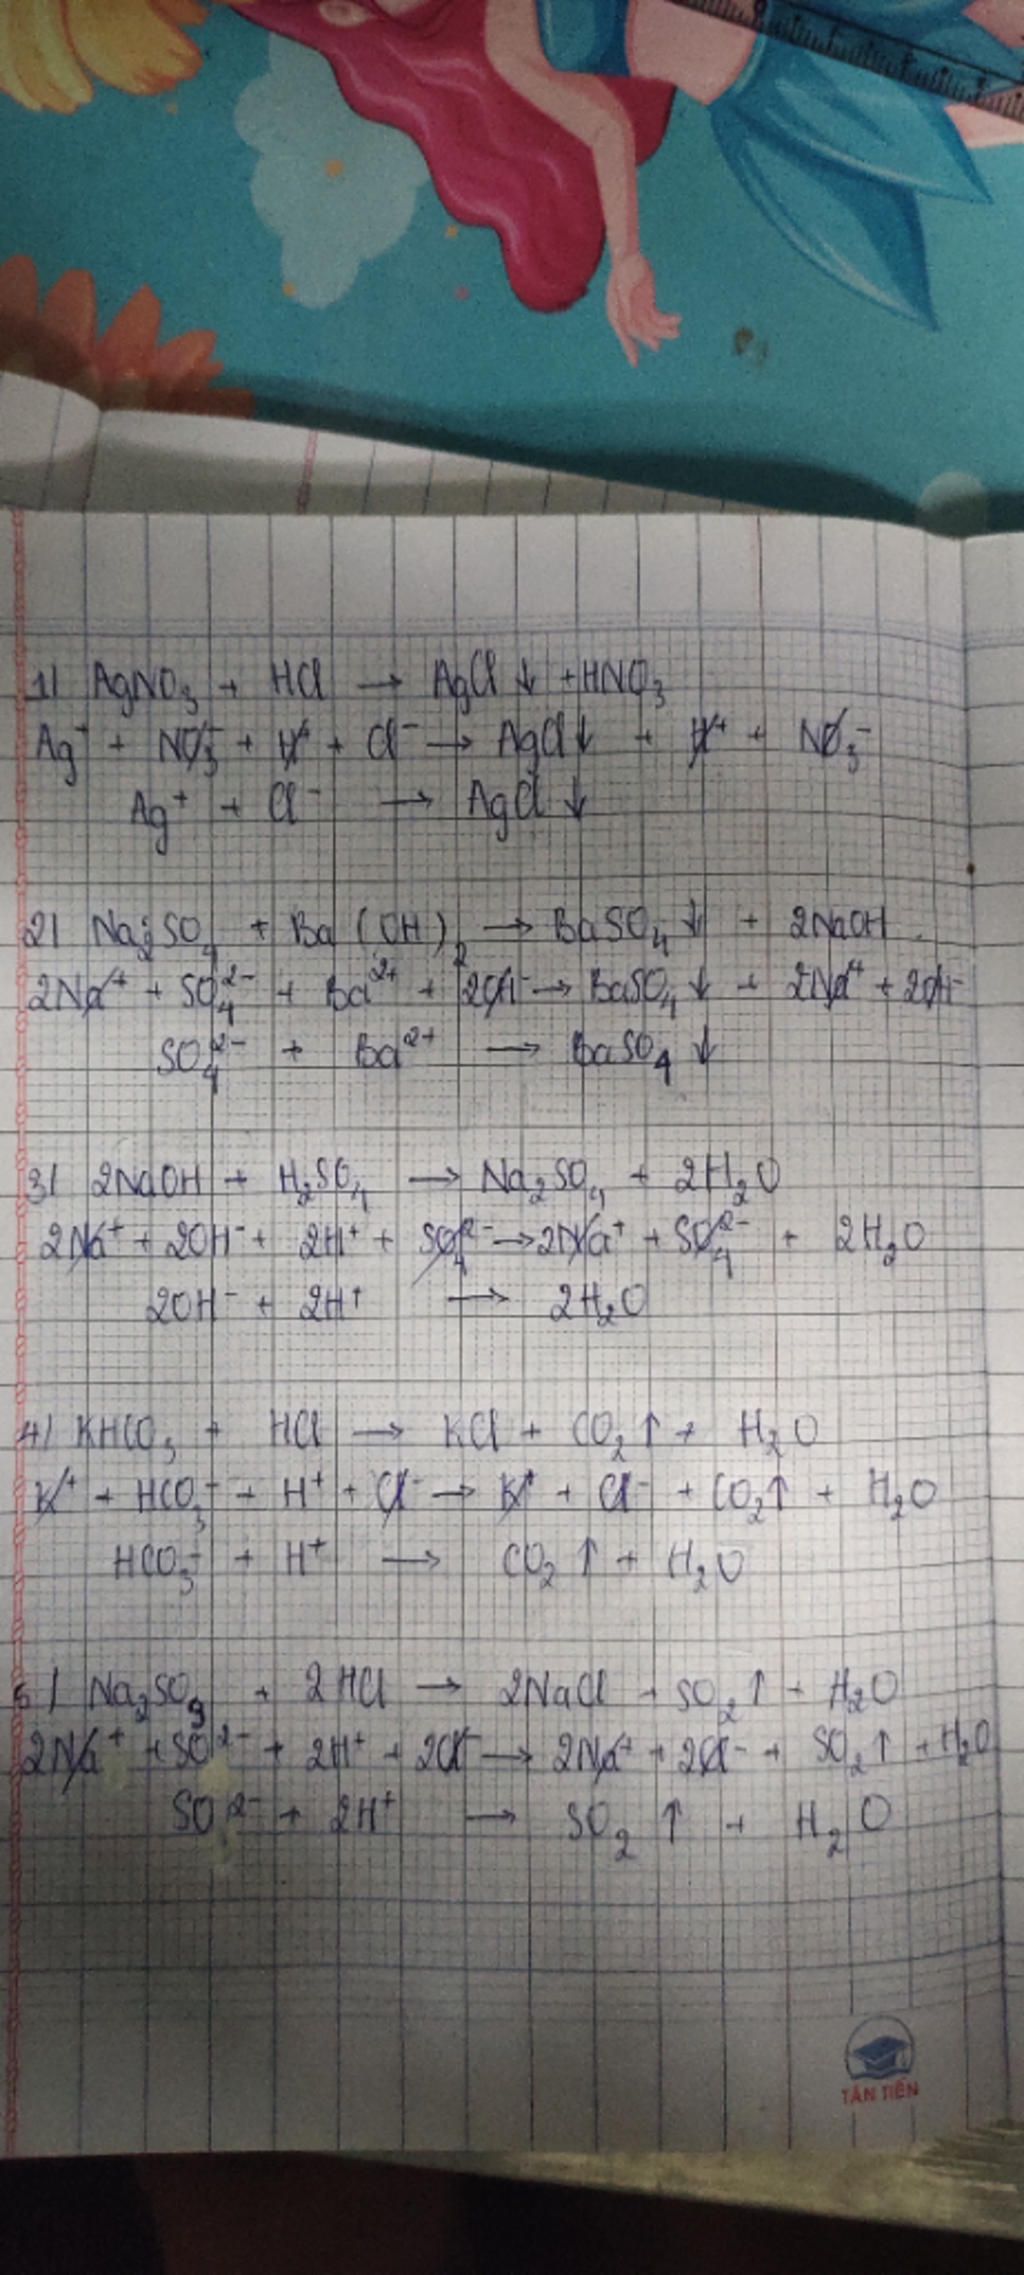 1) AgNO₃ + HCl → AgCl ↓ + HNO₃
Ag⁺ + NO₃⁻ + H⁺ + Cl⁻ → AgCl ↓ + H⁺ + NO₃⁻
Ag⁺ + Cl⁻ → AgCl ↓
2) Na₂SO₄ + Ba(OH)₂ → BaSO₄ ↓ + 2NaOH
2Na⁺ + SO₄²⁻ + Ba²⁺ + 2OH⁻ → BaSO₄ ↓ + 2Na⁺ + 2OH⁻
SO₄²⁻ + Ba²⁺ → BaSO₄ ↓
3) 2NaOH + H₂SO₄ → Na₂SO₄ + 2H₂O
2Na⁺ + 2OH⁻ + 2H⁺ + SO₄²⁻ → 2Na⁺ + SO₄²⁻ + 2H₂O
2OH⁻ + 2H⁺ → 2H₂O
4) KHCO₃ + HCl → KCl + CO₂ ↑ + H₂O
K⁺ + HCO₃⁻ + H⁺ + Cl⁻ → K⁺ + Cl⁻ + CO₂ ↑ + H₂O
HCO₃⁻ + H⁺ → CO₂ ↑ + H₂O
5) Na₂SO₃ + 2HCl → 2NaCl + SO₂ ↑ + H₂O
2Na⁺ + SO²⁻ + 2H⁺ + 2Cl⁻ → 2Na⁺ + 2Cl⁻ + SO₂ ↑ + H₂O
SO²⁻ + 2H⁺ → SO₂ ↑ + H₂O
TÂN TIẾN